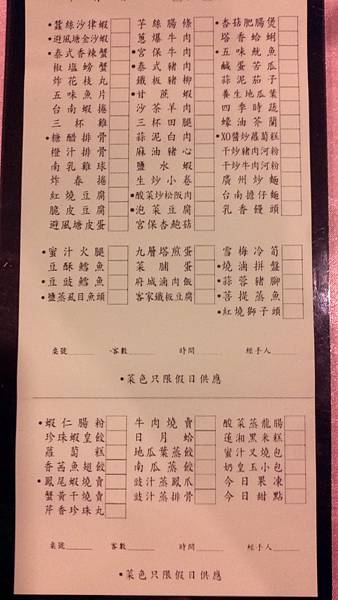 •蠶絲沙律蝦 芋絲腸條 •香菇肥腸煲
•避風塘金沙蝦 蔥爆牛肉 塔香蛤蜊
•泰式香辣蟹 •宮保牛肉 •五味魷魚
椒塩螃蟹 •泰式豬肉 鹹蛋苦瓜
炸花枝丸 鐵板豬柳 蒜泥茄子
五味魚片 •甘蔗蝦 養生地瓜葉
台南蝦捲 沙茶羊肉 四季時蔬
三杯雞 三杯田腿 蠔油芥蘭
•糖醋排骨 蒜泥白肉 •XO醬炒蘿蔔糕
橙汁排骨 麻油豬心 干炒豬肉河粉
南乳雞球 鹽水蝦 干炒牛肉河粉
炸春捲 生炒小卷 廣州炒麵
紅燒豆腐 •酸菜炒松阪肉 台南擔仔麵
脆皮豆腐 •泡菜豆腐 乳香饅頭
避風塘皮蛋 •宮保杏鮑菇
•蜜汁火腿 九層塔煎蛋 雪梅冷筍
•豆酥鱈魚 菜脯蛋 •燒滷拼盤
•豆豉鱈魚 府城滷肉飯 •蒜蓉豬腳
•鹽蒸虱目魚頭 客家鐵板豆腐 •菩提蒸魚
•紅燒獅子頭
桌號 客數 時間 經手人
•菜色只限假日供應
•蝦仁腸粉 牛肉燒賣 酸菜蒸龍腸
珍珠蝦皇餃 日月蛤 蓮湘黑米糕
蘿蔔糕 地瓜葉蒸餃 蜜汁叉燒包
香茜魚翅餃 南瓜蒸餃 奶皇玉小包
•鳳尾蝦燒賣 豉汁蒸鳳爪 今日果凍
蟹黃干燒賣 豉汁蒸排骨 今日甜點
芹香珍珠丸
桌號 客數 時間 經手人
•菜色只限假日供應